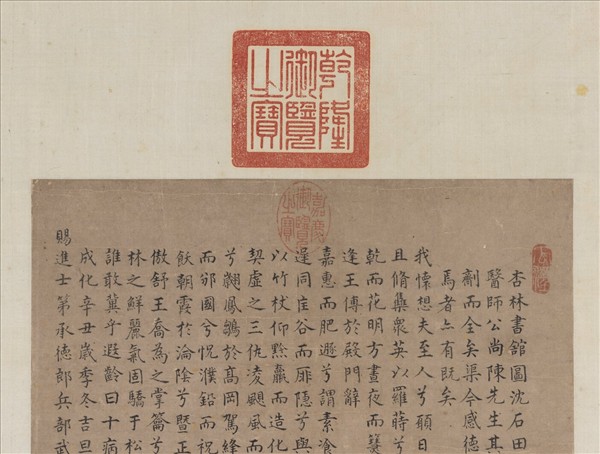 乾隆
御覽
之寶
嘉慶
御覽
之寶
杏林書館圖沈石田
醫師公尚陳先生其
劑而全矣渠今感德
焉者亦有既矣
我愫想夫至人兮頤日
且脩藥衆英以羅蒔兮
乾而花明方晝夜而
逢王傅於殿門辭
嘉惠而肥遯兮謂素飡
同谷而隱兮與
以竹杖仰黔羸而造化
契虛之三仇凌颷風而
兮翽鳳鶵於高岡駕絳
而邠國兮怳濮鉛而祝
飫朝霞於淪陰兮暨正
倣舒王喬為之掌籥兮
林之鮮麗氣固驕于松
誰敢冀乎遐齡曰十病
成化辛丑歲季冬吉旦
賜進士第承德郎兵部武